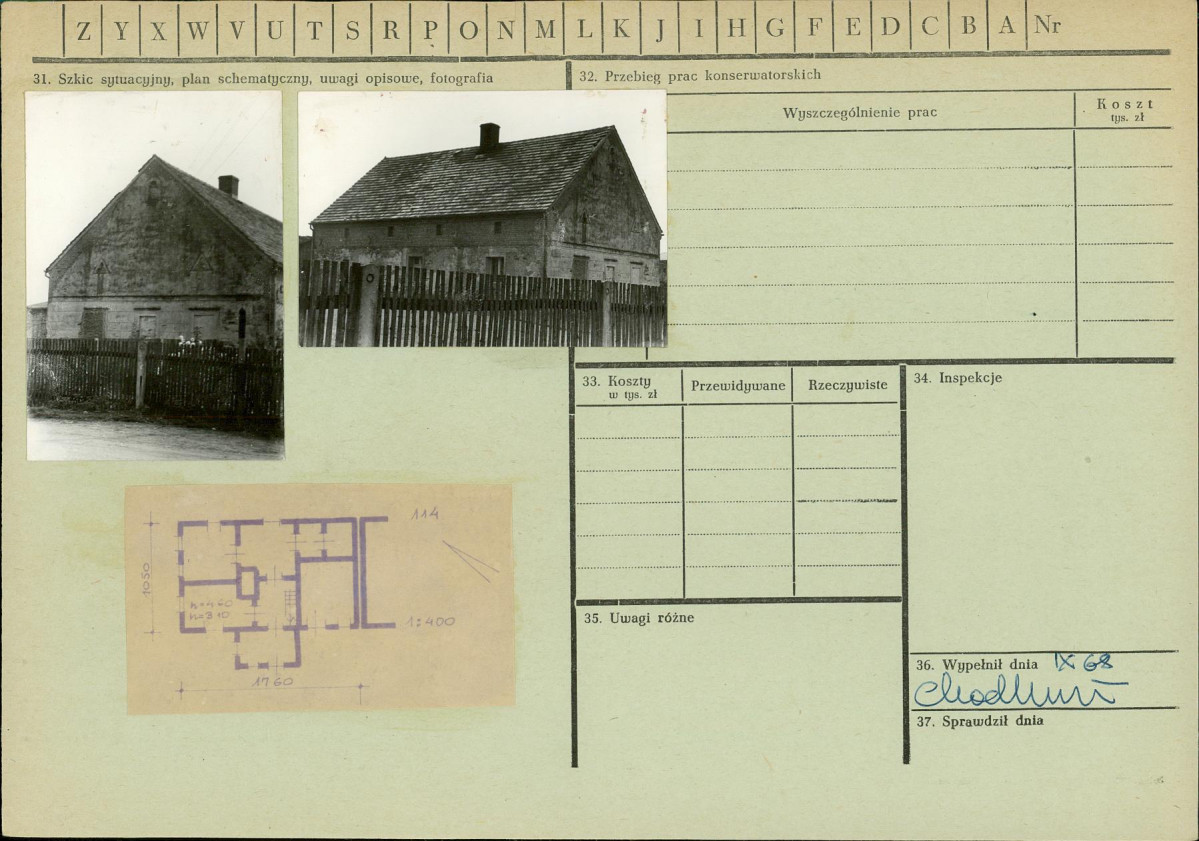 Z Y X W V U T S R P O N M L K J I H G F E D C B A Nr
31. Szkic sytuacyjny, plan schematyczny, uwagi opisowe, fotografia
32. Przebieg prac konserwatorskich
Wyszczególnienie prac
Koszt
tys. zł
33. Koszty
w tys. zł
Przewidywane
Rzeczywiste
34. Inspekcje
114
1050
1:400
1760
35. Uwagi różne
36. Wypełnił dnia IX 68
37. Sprawdził dnia